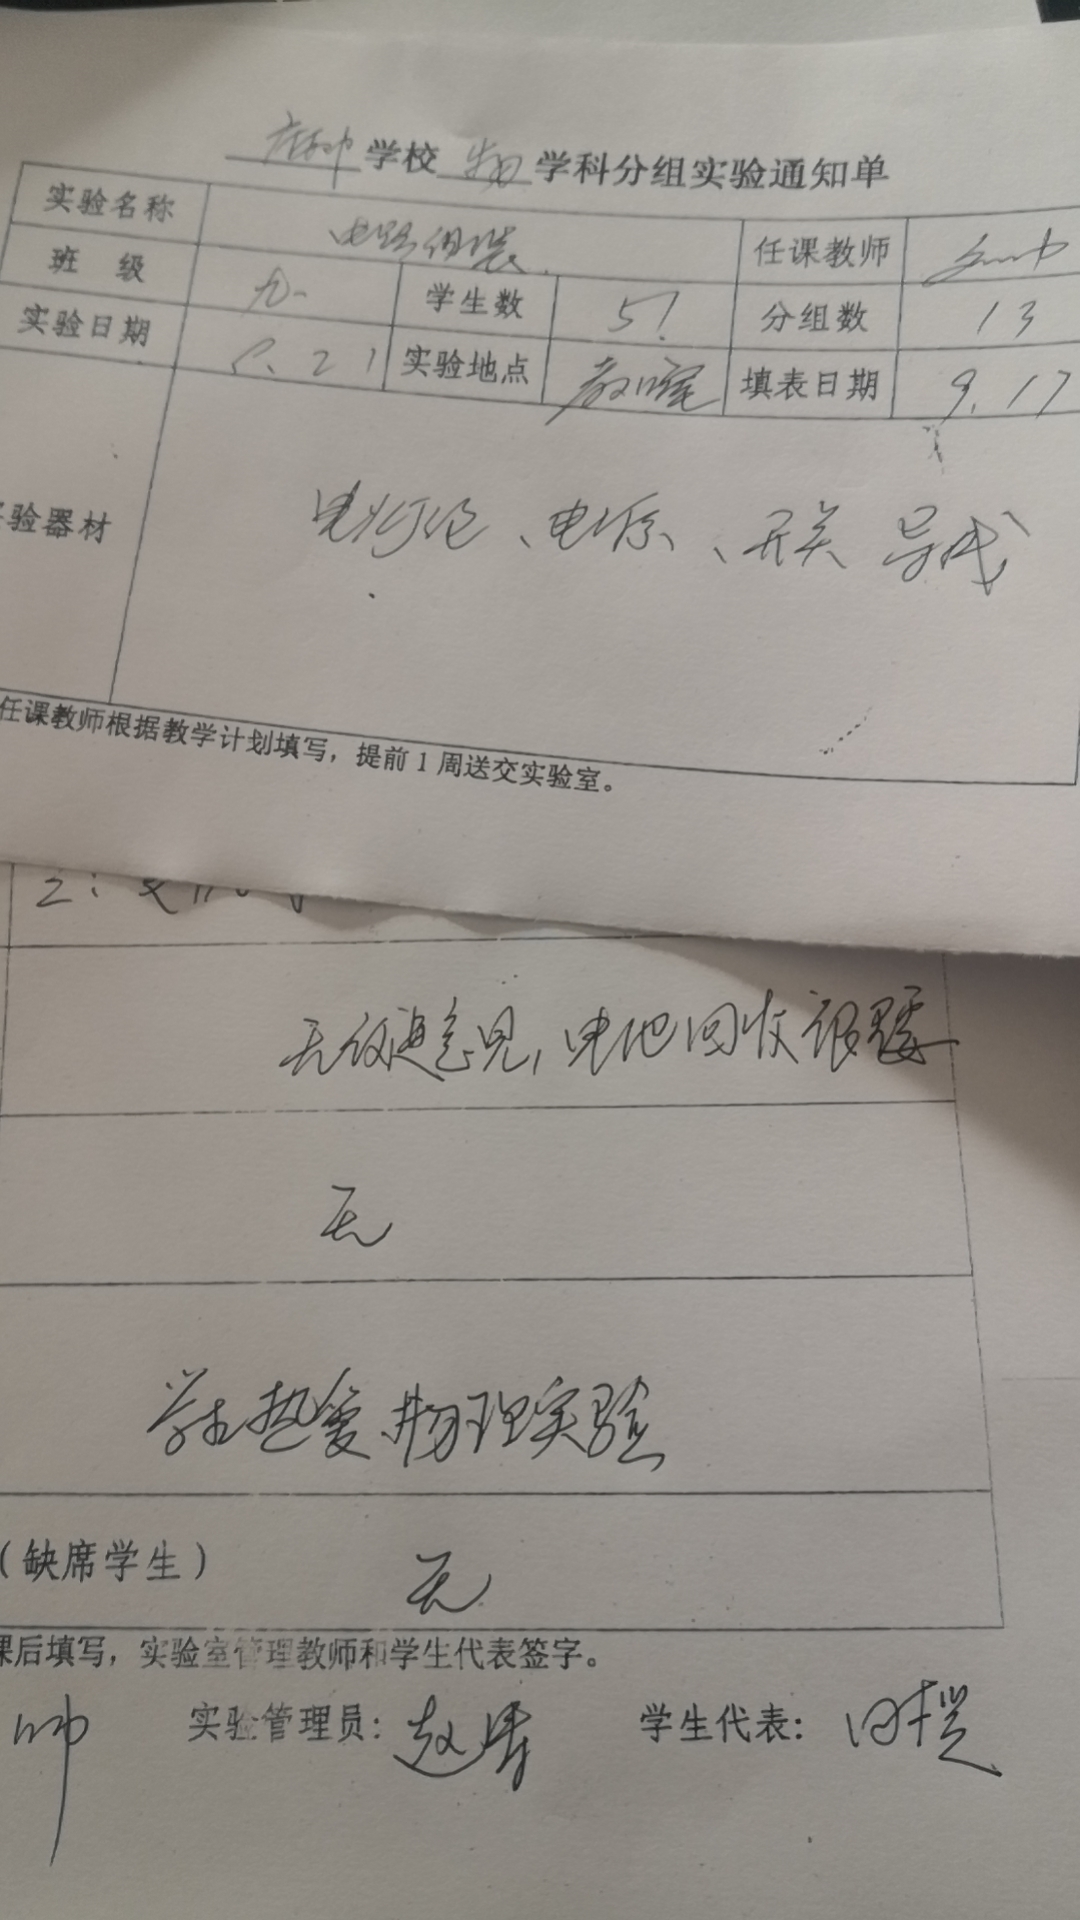 学校 物 学科分组实验通知单
实验名称 电路组装 任课教师
班 级 九一 学生数 51 分组数 13
实验日期 9.21 实验地点 教室 填表日期 9.17
验器材 电灯泡、电源、开关 导线
任课教师根据教学计划填写，提前1周送交实验室。
2:
无 意见，电池回收很重要
无
学生热爱物理实验
（缺席学生） 无
课后填写，实验室管理教师和学生代表签字。
帅 实验管理员：赵 学生代表：田